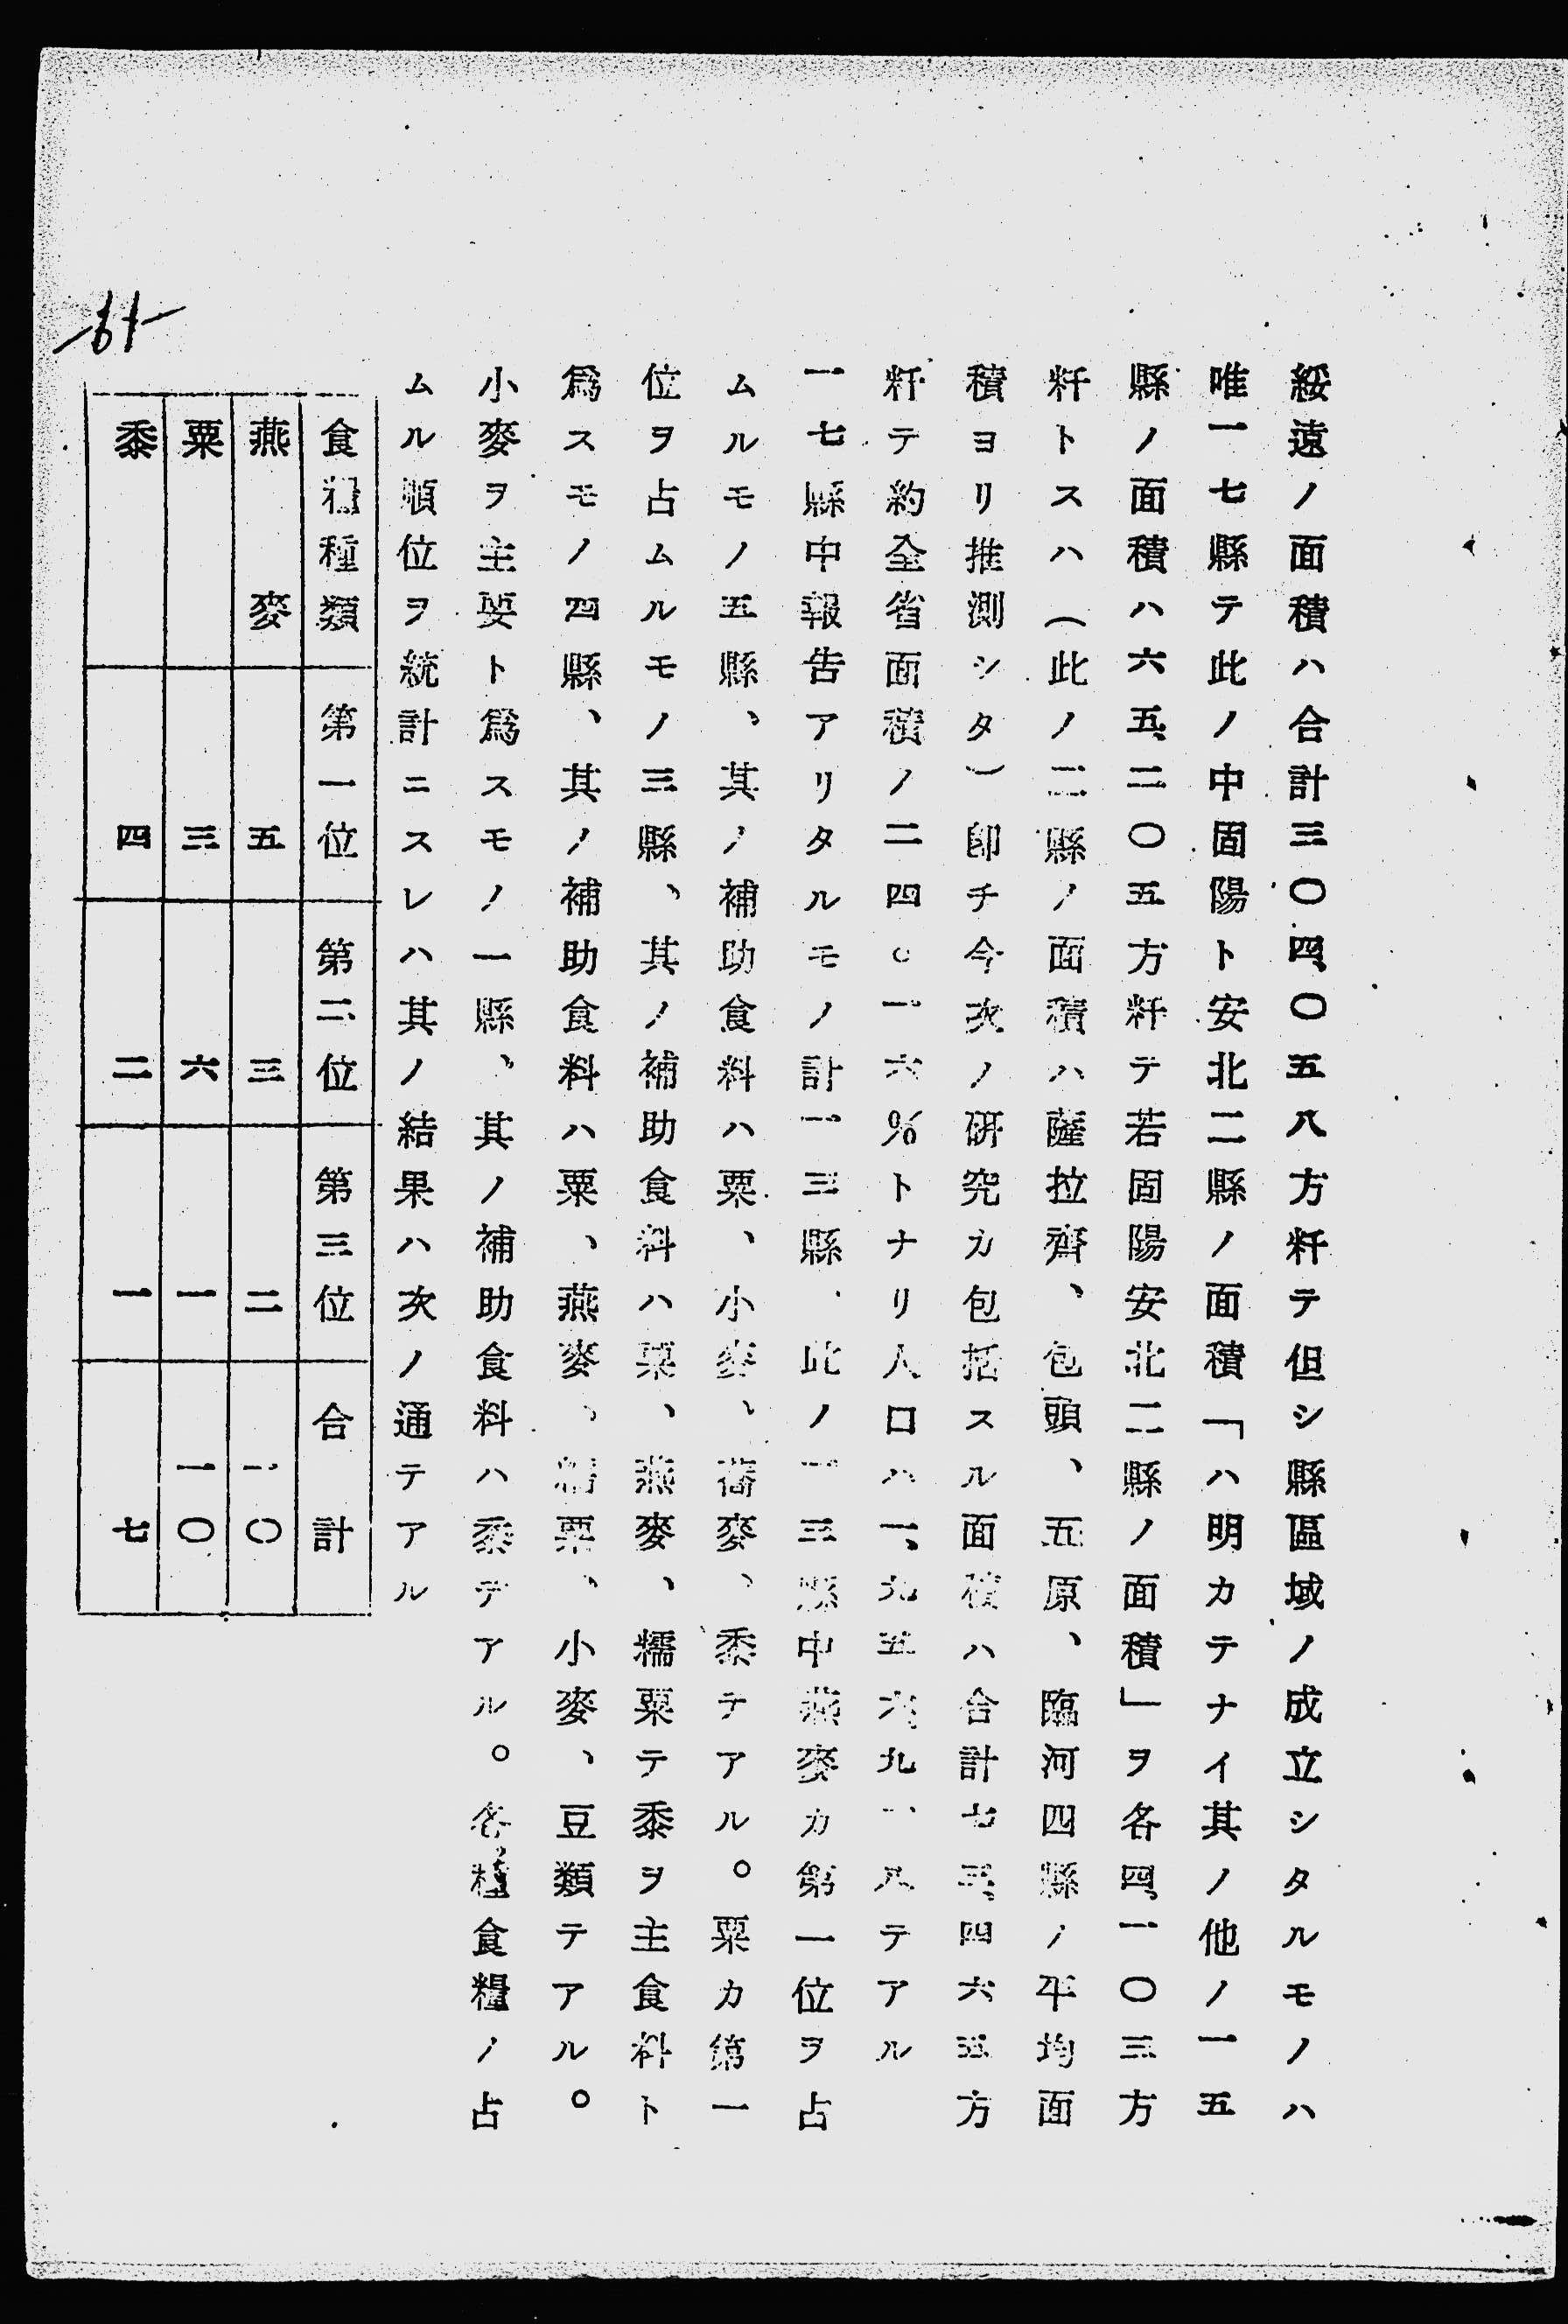 綏遠ノ面積ハ合計三〇四、〇五八方粁テ但シ縣區域ノ成立シタルモノハ
唯一七縣テ此ノ中固陽ト安北二縣ノ面積「ハ明カテナイ其ノ他ノ一五
縣ノ面積ハ六五、二〇五方粁テ若固陽安北二縣ノ面積」ヲ各四、一〇三方
粁トスハ(此ノ二縣ノ面積ハ薩拉齊、包頭、五原、臨河四縣ノ平均面
積ヨリ推測シタ)卽チ今次ノ研究カ包括スル面積ハ合計七三、四六五方
粁テ約全省面積ノ二四。一六%トナリ人口ハ一、九五六、九一八テアル
一七縣中報告アリタルモノ計一三縣、此ノ一三縣中燕麥カ第一位ヲ占
ムルモノ五縣、其ノ補助食料ハ粟、小麥、蕎麥、黍テアル。粟カ第一
位ヲ占ムルモノ三縣、其ノ補助食料ハ粟、燕麥、糯粟テ黍ヲ主食料ト
爲スモノ四縣、其ノ補助食料ハ粟、燕麥、糯粟、小麥、豆類テアル。
小麥ヲ主要ト爲スモノ一縣、其ノ補助食料ハ黍テアル。各種食糧ノ占
ムル順位ヲ統計ニスレハ其ノ結果ハ次ノ通テアル
食糧種類 第一位 第二位 第三位 合計
燕麥 五 三 二 一〇
粟 三 六 一 一〇
黍 四 二 一 七